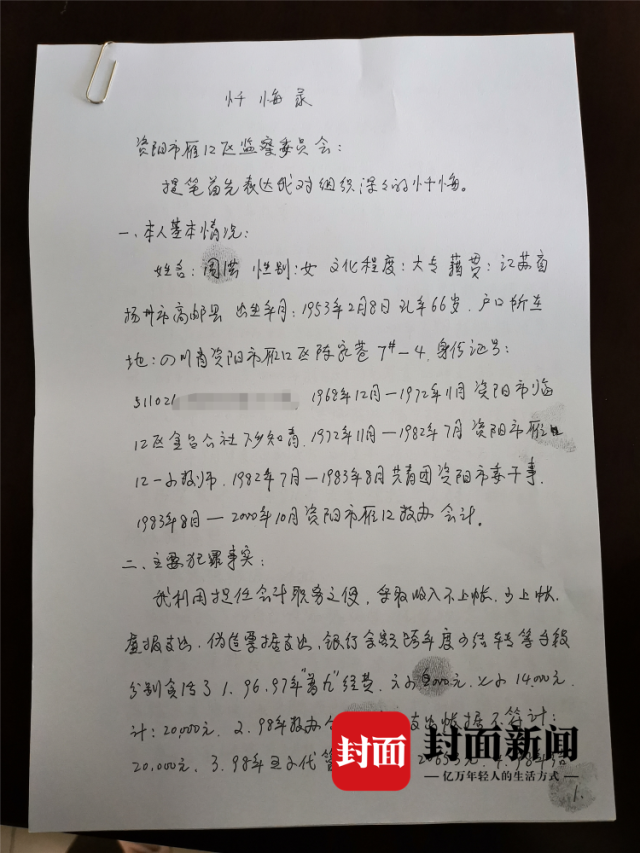 忏悔录
资阳市雁江区监察委员会：
提笔首先表达我对组织深深的忏悔。
一、本人基本情况：
姓名：周洪 性别：女 文化程度：大专 籍贯：江苏省
扬州市高邮县 出生年月：1953年2月8日 现年66岁，户口所在
地：四川省资阳市雁江区陈家巷7#-4，身份证号：
511021 1968年12月—1972年11月 资阳市临
江区金台公社下乡知青，1972年11月—1982年7月 资阳市雁
江一小教师，1982年7月—1983年8月共青团资阳市委干事，
1983年8月—2000年10月资阳市雁江教办会计。
二、主要犯罪事实：
我利用担任会计职务之便，采取收入不上帐、少上帐、
虚报支出、伪造票据支出、银行余额跨年度少结转等手段
分别贪污了1.96.97年"普九"经费，000元，14,000元，
计：20,000元，2.98年教办 支出帐据不符计：
20,000元，3.98年 代管 元，4.98年
1.
封面
封面新闻
亿万年轻人的生活方式